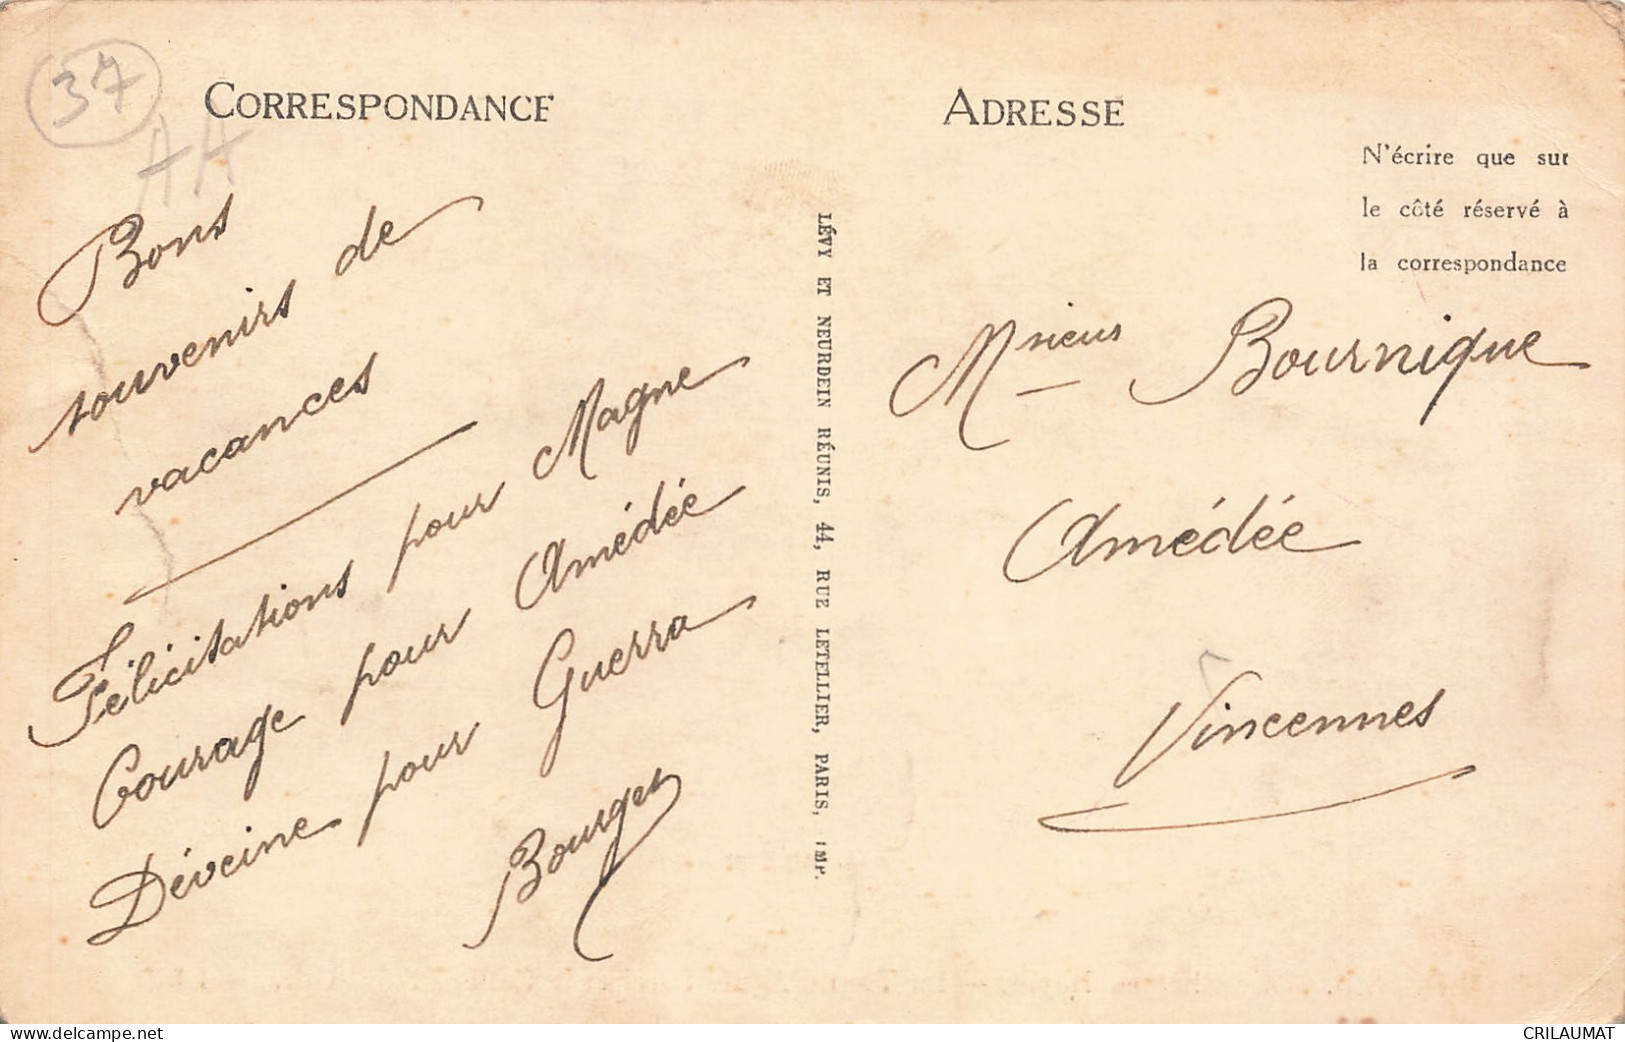 37
AA
CORRESPONDANCE
Bons
souvenirs de
vacances
Félicitations pour Magne
Courage pour Amédée
Déveine pour Guerra
LÉVY ET NEURDEIN RÉUNIS, 44, RUE LETELLIER, PARIS, IMP.
ADRESSE
N'écrire que sur
le côté réservé à
la correspondance
Msieurs Bournique
Amédée
Vincennes
https://www.delcampe.net
CRILAUMAT